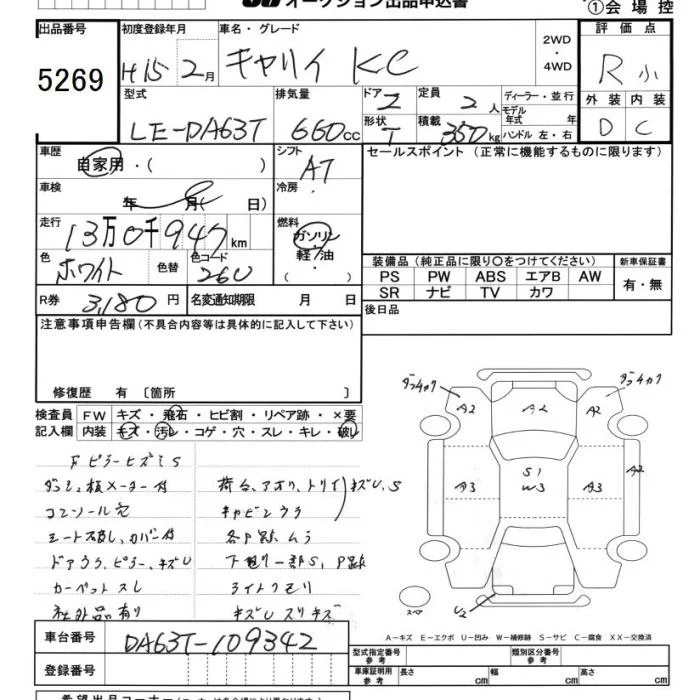 オークション出品申込書
①会場控
出品番号 5269
初度登録年月 H15 2月
車名・グレード キャリイ KC
2WD・4WD
評価点 R小
外装 D 内装 C
型式 LE-DA63T
排気量 660cc
ドア 2 形状 T
定員 2人
積載 350kg
ディーラー・並行
モデル年式 年
ハンドル 左・右
車歴 自家用・( )
シフト AT
セールスポイント (正常に機能するものに限ります)
車検 年 月( 日)
冷房
走行 13万0千947km
燃料 ガソリン・軽油・( )
色 ホワイト 色替 色コード 26U
装備品 (純正品に限り〇をつけてください) 新車保証書
PS PW ABS エアB AW 有・無
SR ナビ TV カワ
R券 3,180円 名変通知期限 月 日
後日品
注意事項申告欄 (不具合内容等は具体的に記入して下さい)
修復歴 有 〔箇所 〕
検査員 FW キズ・飛石・ヒビ割・リペア跡・×要
記入欄 内装 キズ・汚レ・コゲ・穴・スレ・キレ・破レ
FピラーヒズミS
ダッシュ枝メーター付 荷台、アオリ、トリイ キズU、S
コンソール穴 キャビンウラ
シート破レ、カバー付 各P跡、ムラ
ドアウラ、ピラー、キズU 下廻り一部S、P跡
カーペットスレ ライトクモリ
社外品有り キズUスリキズ
ダコチョク ダコチョク
A2 A2 A2
S1
A3 W3 A3 A2
スペア U2
A-キズ E-エクボ U-凹み W-補修跡 S-サビ C-腐食 XX-交換済
車台番号 DA63T-109342
型式指定番号 参考 類別区分番号 参考
登録番号
車庫証明用 参考 長さ cm 幅 cm 高さ cm